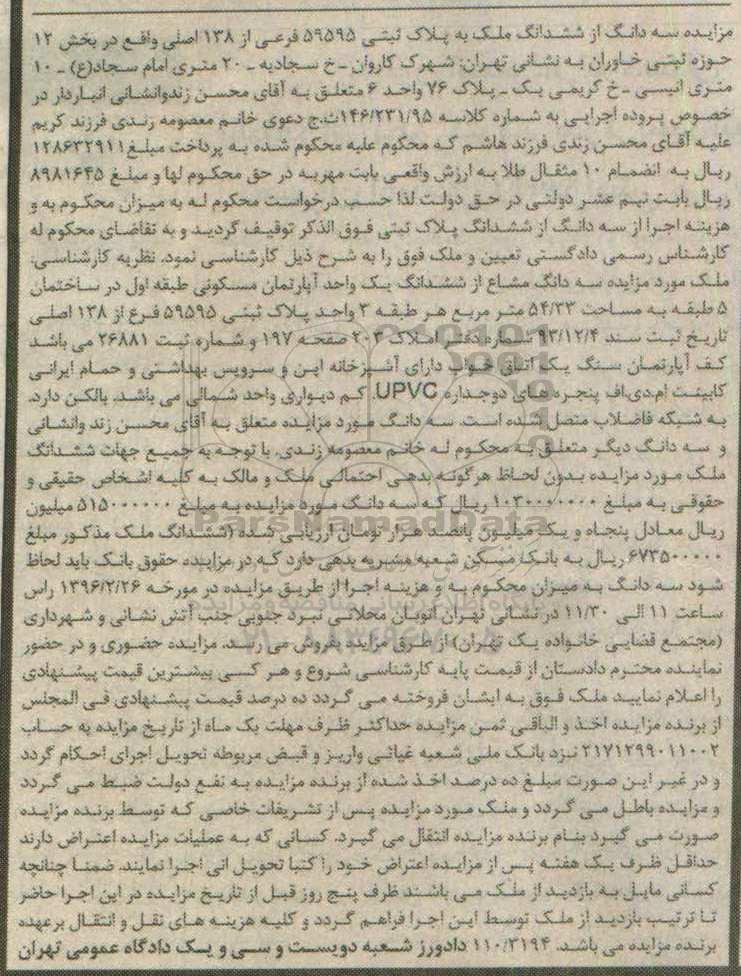 مزایده سه دانگ از ششدانگ ملک به پلاک ثبتی ۵۹۵۹۵ فرعی از ۱۳۸ اصلی واقع در بخش ۱۲
حوزه ثبتی خاوران به نشانی تهران: شهرک کاروان ـ خ سجادیه ـ ۲۰ متری امام سجاد(ع) ـ ۱۰
متری انیسی ـ خ کریمی یک ـ پلاک ۷۶ واحد ۶ متعلق به آقای محسن زندوانشانی انباردار در
خصوص پروده اجرایی به شماره کلاسه ۱۴۶/۲۳۱/۹۵ث.ج دعوی خانم معصومه رندی فرزند کریم
علیه آقای محسن زندی فرزند هاشم که محکوم علیه محکوم شده به پرداخت مبلغ ۱۲۸۶۳۲۹۱۱
ریال به انضمام ۱۰ مثقال طلا به ارزش واقعی بابت مهریه در حق محکوم لها و مبلغ ۸۹۸۱۶۴۵
ریال بابت نیم عشر دولتی در حق دولت لذا حسب درخواست محکوم له به میزان محکوم به و
هزینه اجرا از سه دانگ از ششدانگ پلاک ثبتی فوق الذکر توقیف گردید و به تقاضای محکوم له
کارشناس رسمی دادگستی تعیین و ملک فوق را به شرح ذیل کارشناسی نمود. نظریه کارشناسی:
ملک مورد مزایده سه دانگ مشاع از ششدانگ یک واحد آپارتمان مسکونی طبقه اول در ساختمان
۵ طبقه به مساحت ۵۴/۳۳ متر مربع هر طبقه ۳ واحد پلاک ثبتی ۵۹۵۹۵ فرع از ۱۳۸ اصلی
تاریخ ثبت سند ۹۳/۱۲/۴ شماره دفتر املاک ۲۰۳ صفحه ۱۹۷ و شماره ثبت ۲۶۸۸۱ می باشد
کف آپارتمان سنگ یک اتاق خواب دارای آشپزخانه اپن و سرویس بهداشتی و حمام ایرانی
کابینت ام.دی.اف پنجره های دوجداره UPVC. کم دیواری واحد شمالی می باشد. بالکن دارد.
به شبکه فاضلاب متصل شده است. سه دانگ مورد مزایده متعلق به آقای محسن زند وانشانی
و سه دانگ دیگر متعلق به محکوم له خانم معصومه زندی. با توجه به جمیع جهات ششدانگ
ملک مورد مزایده بدون لحاظ هرگونه بدهی احتمالی ملک و مالک به کلیه اشخاص حقیقی و
حقوقی به مبلغ ۱۰۳۰۰۰۰۰۰۰ ریال که سه دانگ مورد مزایده به مبلغ ۵۱۵۰۰۰۰۰۰ میلیون
ریال معادل پنجاه و یک میلیون پانصد هزار تومان ارزیابی شده (ششدانگ ملک مذکور مبلغ
۶۷۳۵۰۰۰۰۰ ریال به بانک مسکن شعبه مشیریه بدهی دارد که در مزایده حقوق بانک باید لحاظ
شود سه دانگ به میزان محکوم به و هزینه اجرا از طریق مزایده در مورخه ۱۳۹۶/۲/۲۶ راس
ساعت ۱۱ الی ۱۱/۳۰ در نشانی تهران اتوبان محلاتی نبرد جنوبی جنب آتش نشانی و شهرداری
(مجتمع قضایی خانواده یک تهران) از طرق مزایده بفروش می رسد. مزایده حضوری و در حضور
نماینده محترم دادستان از قیمت پایه کارشناسی شروع و هر کسی بیشترین قیمت پیشنهادی
را اعلام نمایید ملک فوق به ایشان فروخته می گردد ده درصد قیمت پیشنهادی فی المجلس
از برنده مزایده اخذ و الباقی ثمن مزایده حداکثر ظرف مهلت یک ماه از تاریخ مزایده به حساب
۲۱۷۱۲۹۹۰۱۱۰۰۲ نزد بانک ملی شعبه غیاثی واریز و قبض مربوطه تحویل اجرای احکام گردد
و در غیر این صورت مبلغ ده درصد اخذ شده از برنده مزایده به نفع دولت ضبط می گردد
و مزایده باطل می گردد و ملک مورد مزایده پس از تشریفات خاصی که توسط برنده مزایده
صورت می گیرد بنام برنده مزایده انتقال می گیرد. کسانی که به عملیات مزایده اعتراض دارند
حداقل ظرف یک هفته پس از مزایده اعتراض خود را کتبا تحویل اتی اجرا نمایند. ضمنا چنانچه
کسانی مایل به بازدید از ملک می باشند ظرف پنج روز قبل از تاریخ مزایده در این اجرا حاضر
تا ترتیب بازدید از ملک توسط این اجرا فراهم گردد و کلیه هزینه های نقل و انتقال برعهده
برنده مزایده می باشد. ۱۱۰/۳۱۹۴ دادورز شعبه دویست و سی و یک دادگاه عمومی تهران
ParsNamadData